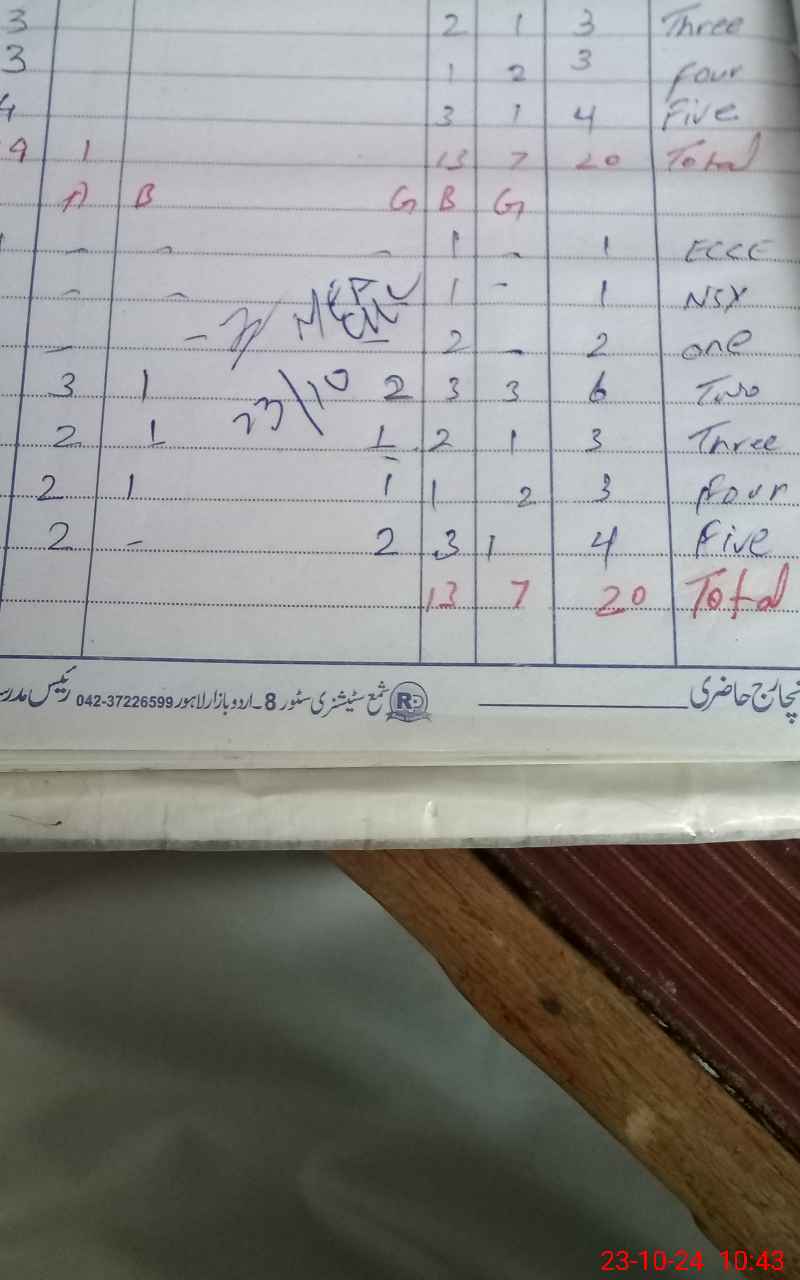 3 2 1 3 Three
3 1 2 3 four
4 3 1 4 Five
9 1 13 7 20 Total
A B G B G
- - - 1 - 1 ECCE
- - 1 - 1 NSY
- - 2 - 2 one
3 1 23/10 2 3 3 6 Two
2 1 1 2 1 3 Three
2 1 1 1 2 3 four
2 - 2 3 1 4 Five
13 7 20 Total
انچارج حاضری RD شمع سٹیشنری سٹور 8۔اردو بازار لاہور 042-37226599 رئیس مدرسہ
23-10-24 10:43